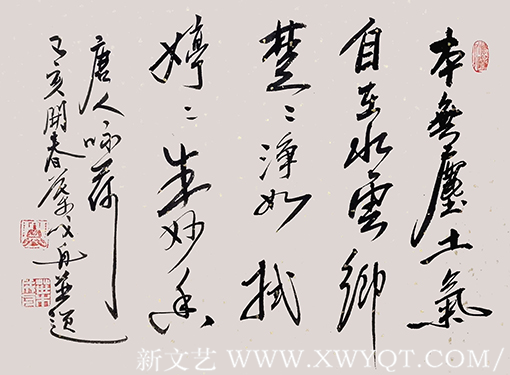 本無塵土氣
自在水雲鄉
楚〻淨如拭
婷〻生妙香
唐人咏荷
丁亥開春 並題
新文艺 WWW.XWYQT.COM